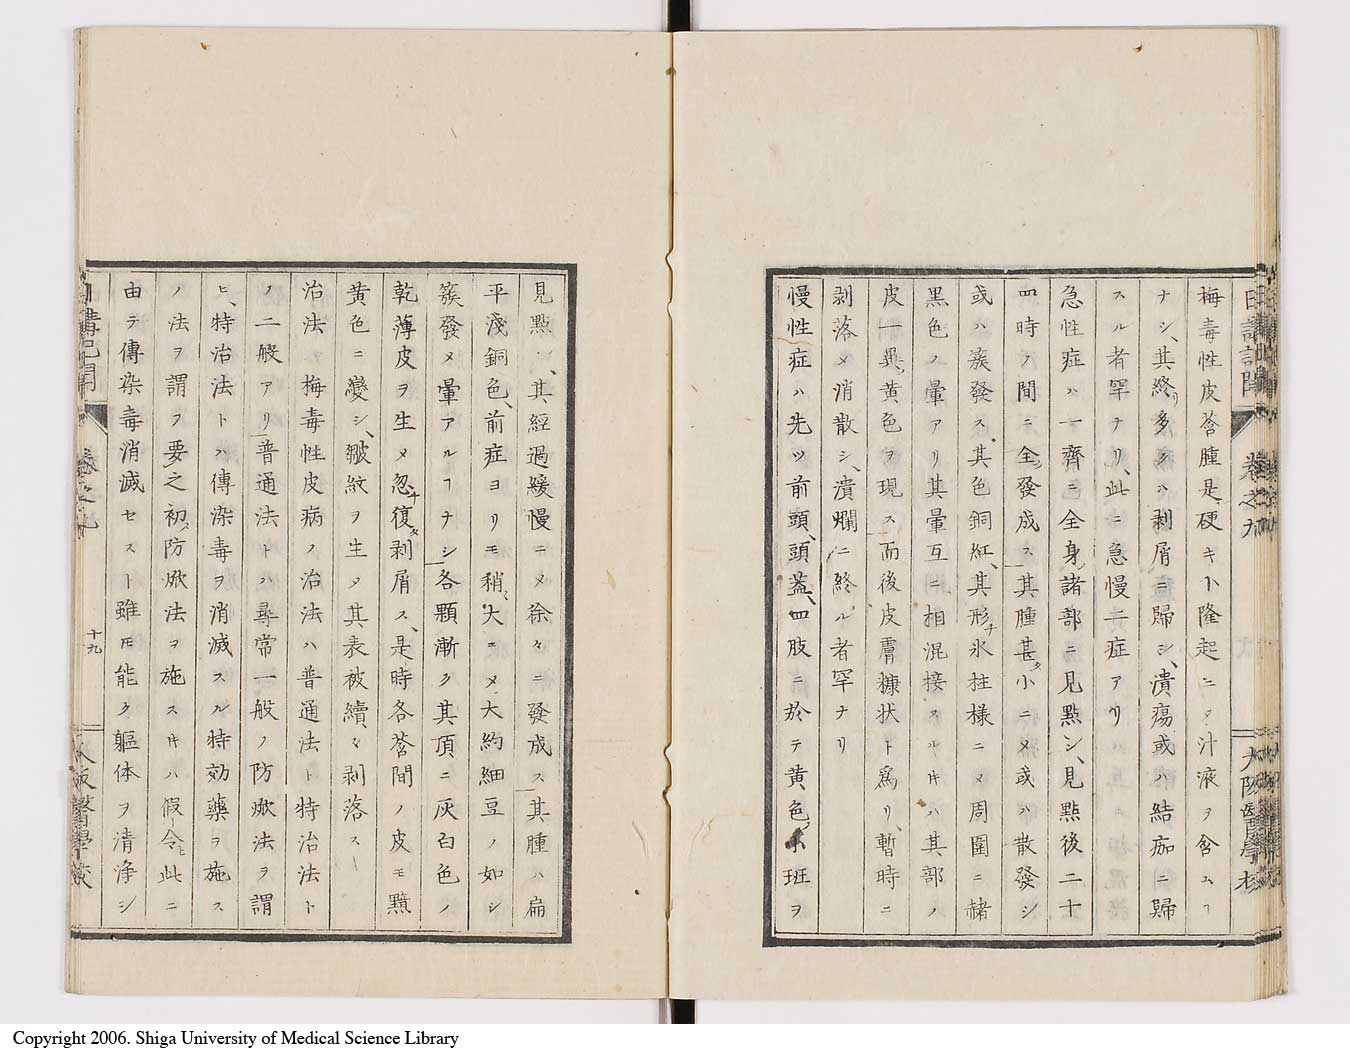 日講記聞 卷之九 大阪醫學校
梅毒性皮莟腫是、硬キト隆起ニメ汁液ヲ含ムヿ
ナシ、其終リ多クハ剥屑ニ歸シ、潰瘍或ハ結痂ニ歸
スル者罕ナリ、此ニ急慢二症アリ
急性症ハ一齊ニ全身諸部ニ見點シ、見點後二十
四時ノ間ニ全ク發成ス其腫甚タ小ニメ或ハ散發シ
或ハ簇發ス、其色銅紅、其形チ氷柱様ニメ周圍ニ赭
黒色ノ暈アリ其暈互ニ相混接スルキハ其部ノ
皮一異、黄色ヲ現ス而後皮膚糠状ト爲リ、暫時ニ
剥落メ消散シ、潰爛ニ終ル者罕ナリ
慢性症ハ先ツ前頭、頭蓋、四肢ニ於テ黄色小班ヲ
見點、其經過緩慢ニメ徐々ニ發成ス其腫ハ扁
平淺銅色、前症ヨリモ稍大ニメ大約細豆ノ如シ
簇發メ暈アルヿナシ各顆漸ク其頂ニ灰白色ノ
乾薄皮ヲ生メ忽チ復タ剥屑ス、是時各莟間ノ皮モ黙
黄色ニ變シ、皺紋ヲ生タ其表被續々剥落ス
治法梅毒性皮病ノ治法ハ普通法ト特治法ト
ノ二般アリ普通法トハ尋常一般ノ防焮法ヲ謂
ヒ、特治法トハ傳染毒ヲ消滅スル特効藥ヲ施ス
ノ法ヲ謂フ要之初メ防焮法ヲ施スキハ假令ヒ此ニ
由テ傳染毒消滅セスト雖モ能ク軀体ヲ清浄シ
日講記聞 卷之九 十九 大阪醫學校
Copyright 2006. Shiga University of Medical Science Library